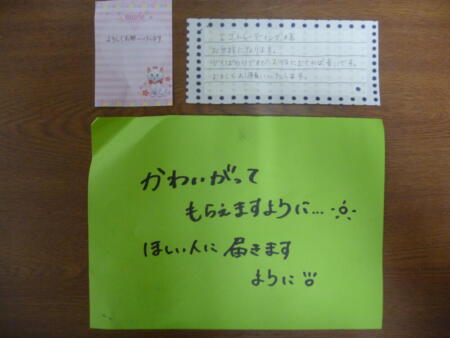 よろしくお願いいたします
エコトレーディング様
お世話になります。
よろしくお願いいたします。
かわいがって
もらえますように…
ほしい人に届きます
ように